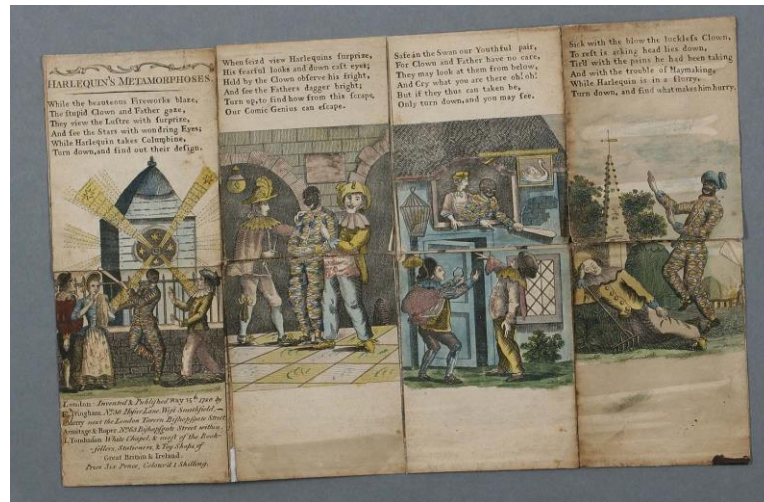 HARLEQUIN'S METAMORPHOSES.
While the beauteous Fireworks blaze,
The stupid Clown and Father gaze,
They view the Lustre with surprize,
And see the Stars with wondring Eyes;
While Harlequin takes Columbine,
Turn down, and find out their design.
London Invented & Published May 15th
Tringham No 36 Hosier Lane West Smithfield,
next the London Tavern Bishopsgate Street
Armitage & Roper No 63 Bishopsgate Street within
White Chapel, & most of the Book-
sellers, Stationers, & Toy Shops of
Great Britain & Ireland.
Price Six Pence, Colour'd 1 Shilling.
When seiz'd view Harlequins surprize,
His fearful looks and down cast eyes;
Held by the Clown observe his fright,
And see the Fathers dagger bright;
Turn up, to find how from this scrape,
Our Comic Genius can escape.
Safe in the Swan our Youthful pair,
For Clown and Father have no care,
They may look at them from below,
And Cry what you are there oh! oh!
But if they thus can taken be,
Only turn down, and you may see.
Sick with the blow the luckless Clown,
To rest is acking head lies down,
Tir'd with the pains he had been taking
And with the trouble of Haymaking,
While Harlequin is in a flurry,
Turn down, and find what makes him hurry.